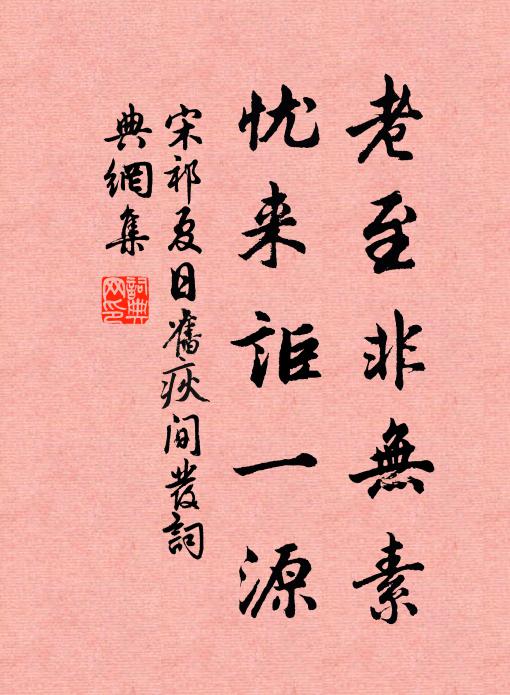 老至非無素
忧来詎一源
宋祁夏日舊疾间發詞
典網集
詞典网印